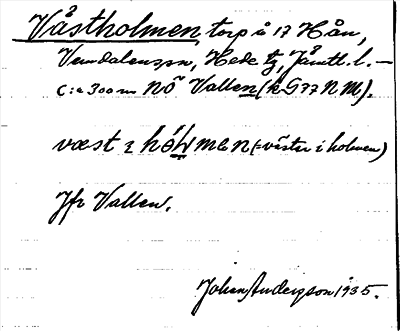 Våstholmen, torp å 17 Hån,
Vemdalens sn, Hede tg, Jämtl. l. –
c:a 300 m NÖ Vallen (kG77NM).
væst ɪ hol̥mɛn (= väster i holmen)
Jfr Vallen.
Johan Anderson 1935.